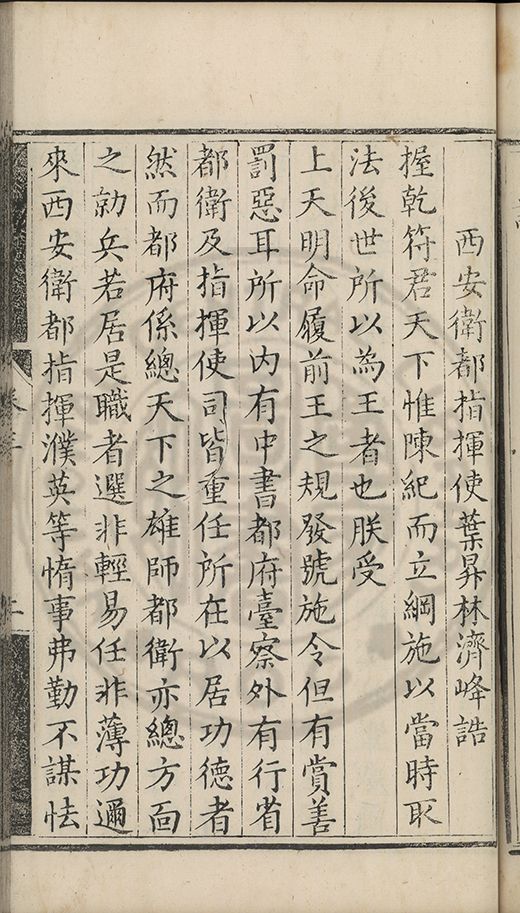 西安衛都指揮使葉昇林濟峰誥
握乾符君天下惟陳紀而立綱施以當時取
法後世所以為王者也朕受
上天明命履前王之規發號施令但有賞善
罰惡耳所以内有中書都府臺察外有行省
都衛及指揮使司皆重任所在以居功德者
然而都府係總天下之雄師都衛亦總方面
之勍兵若居是職者選非輕易任非薄功邇
來西安衛都指揮濮英等惰事弗勤不謀怯
卷三